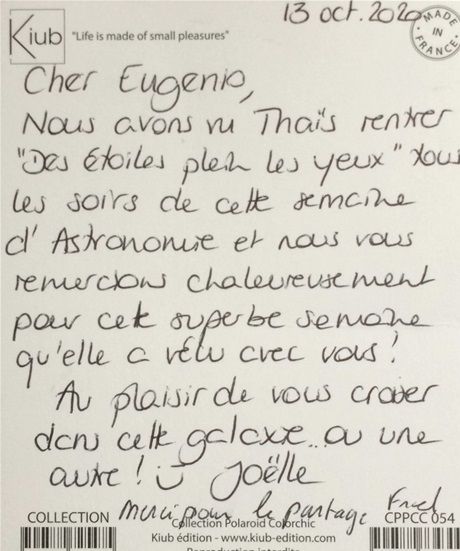 13 oct. 2020
Kiub "Life is made of small pleasures"
MADE IN FRANCE
Cher Eugenio,
Nous avons vu Thaïs rentrer
"Des étoiles plein les yeux" tous
les soirs de cette semaine
d'Astronomie et nous vous
remercions chaleureusement
pour cette superbe semaine
qu'elle a vécu avec vous !
Au plaisir de vous croiser
dans cette galaxie.. ou une
autre ! Joëlle
Merci pour le partage
COLLECTION Collection Polaroid Colorchic CPPCC 054
Kiub édition - www.kiub-edition.com
Reproduction interdite